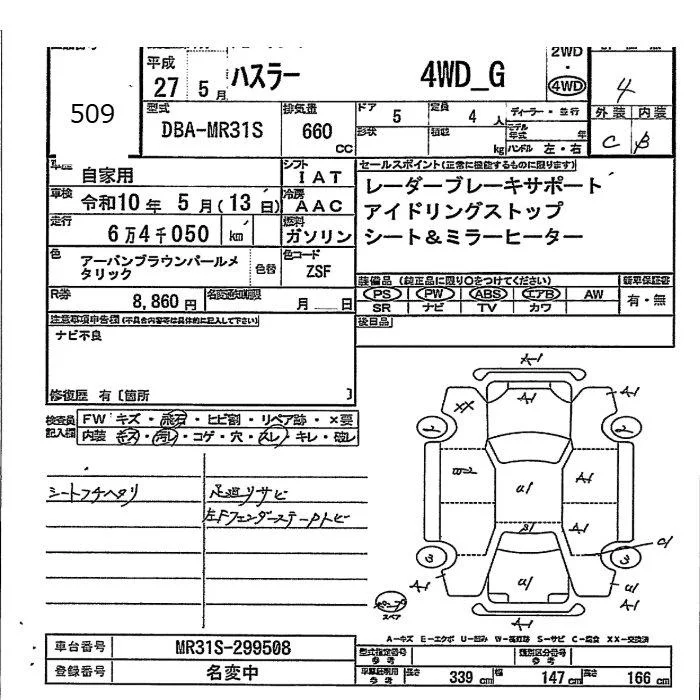 509
平成
27 5月
ハスラー
4WD_G
2WD
4WD
4
型式
DBA-MR31S
排気量
660 CC
ドア
5
定員
4 人
形状
積載
kg
ディーラー・並行
モデル年式 年
ハンドル 左・右
外装 内装
C B
車歴
自家用
シフト
IAT
車検
令和10年 5月(13日)
冷房
AAC
走行
6万4千050 km
燃料
ガソリン
色
アーバンブラウンパールメタリック
色替
色コード
ZSF
R券
8,860円
名変通知期限
月 日
セールスポイント(正常に機能するものに限ります)
レーダーブレーキサポート
アイドリングストップ
シート&ミラーヒーター
装備品(純正品に限り○をつけてください)
新車保証書
PS PW ABS エアB AW
SR ナビ TV カワ
有・無
後日品
注意事項申告欄(不具合内容等は具体的に記入して下さい)
ナビ不良
修復歴 有〔箇所 〕
検査員記入欄
FW キズ・飛石・ヒビ割・リペア跡・×要
内装 キズ・汚レ・コゲ・穴・スレ・キレ・破レ
シートフチヘタリ
足廻リサビ
A1
A1
XX
A1
W2
U1
A1
A1
B1
A1
C1
U1
A1
U1
A1
A1
スペア
A-キズ E-エクボ U-凹み W-補修跡 S-サビ C-腐食 XX-交換済
車台番号
MR31S-299508
登録番号
名変中
型式指定番号
参考
類別区分番号
参考
車庫証明用
参考
長さ
339 cm
幅
147 cm
高さ
166 cm